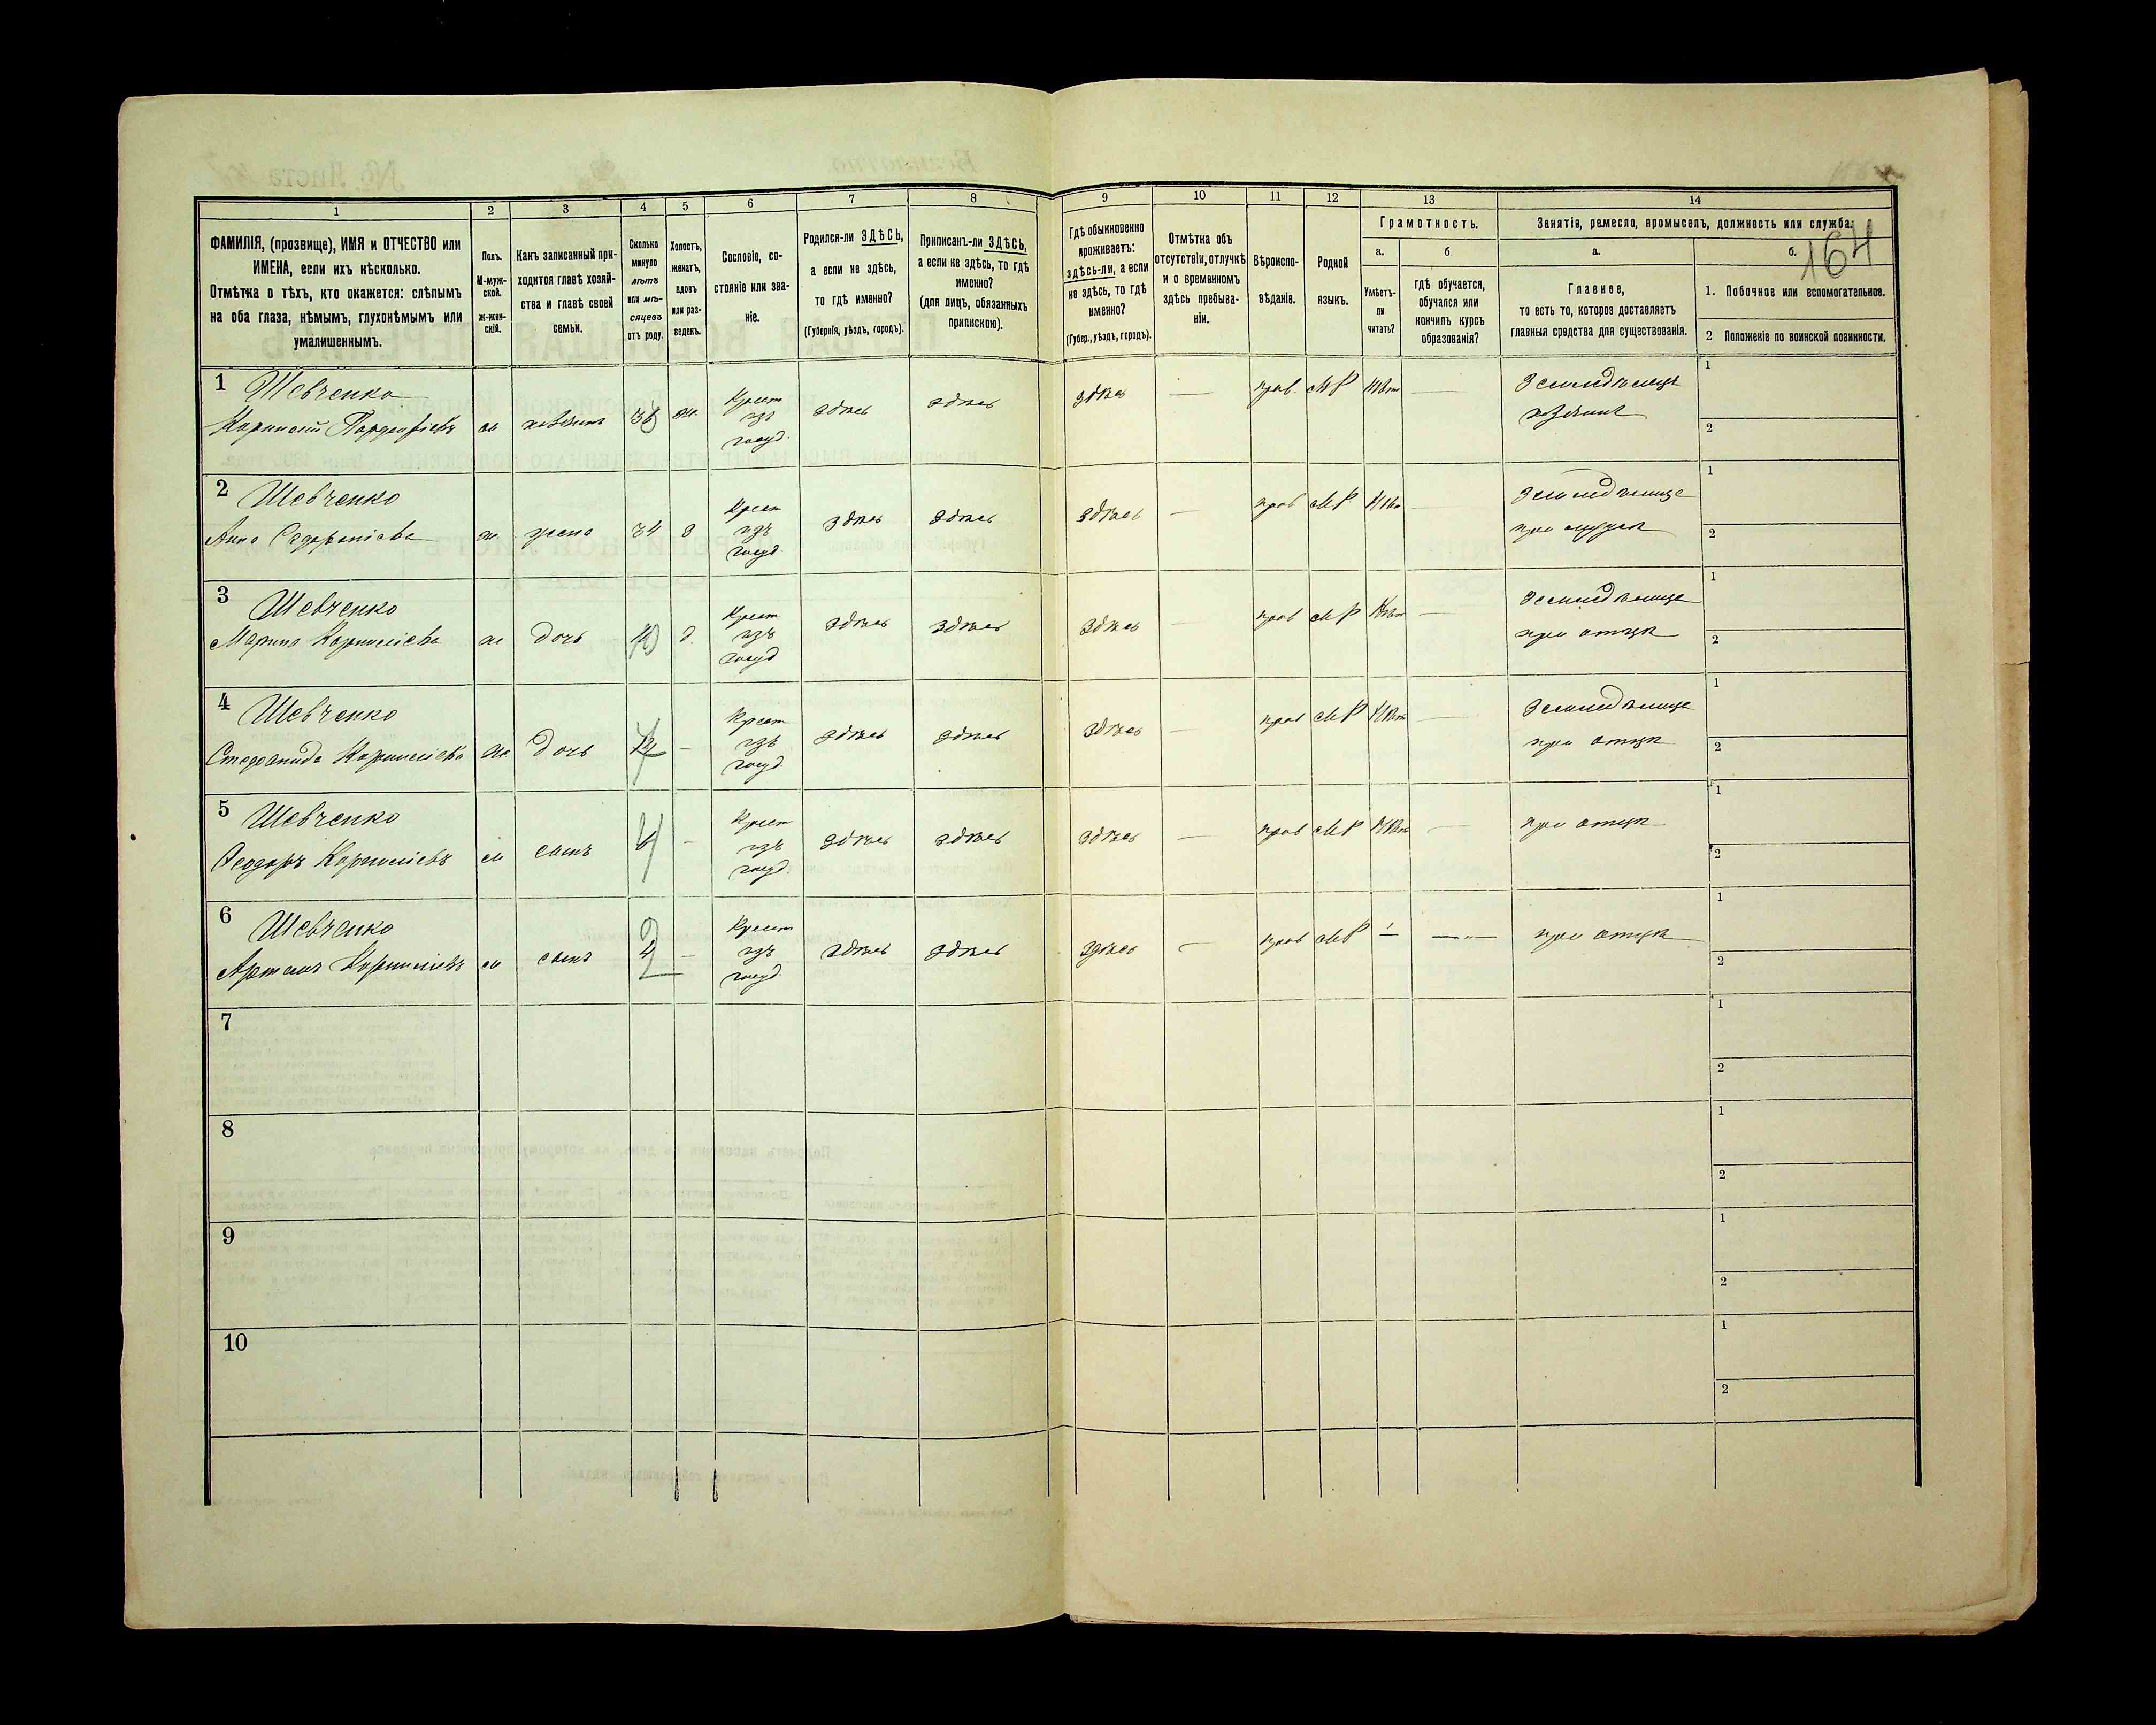 1
2
3
4
5
6
7
8
9
10
11
12
13
14
ФАМИЛІЯ, (прозвище), ИМЯ и ОТЧЕСТВО или
ИМЕНА, если ихъ нѣсколько.
Отмѣтка о тѣхъ, кто окажется: слѣпымъ
на оба глаза, нѣмымъ, глухонѣмымъ или
умалишеннымъ.
Полъ.
М-муж-
ской.
ж-жен-
скій.
Какъ записанный при-
ходится главѣ хозяй-
ства и главѣ своей
семьи.
Сколько
минуло
лѣтъ
или мѣ-
сяцевъ
отъ роду.
Холостъ,
женатъ,
вдовъ
или раз-
веденъ.
Сословіе, со-
стояніе или зва-
ніе.
Родился-ли ЗДѢСЬ,
а если не здѣсь,
то гдѣ именно?
(Губернія, уѣздъ, городъ).
Приписанъ-ли ЗДѢСЬ,
а если не здѣсь, то гдѣ
именно?
(для лицъ, обязанныхъ
припискою).
Гдѣ обыкновенно
проживаетъ:
здѣсь-ли, а если
не здѣсь, то гдѣ
именно?
(Губер., уѣздъ, городъ).
Отмѣтка объ
отсутствіи, отлучкѣ
и о временномъ
здѣсь пребыва-
ніи.
Вѣроиспо-
вѣданіе.
Родной
языкъ.
Грамотность.
а.
Умѣетъ-
ли
читать?
б
гдѣ обучается,
обучался или
кончилъ курсъ
образованія?
Занятія, ремесло, промыселъ, должность или служба.
164
а.
Главное,
то есть то, которое доставляетъ
главныя средства для существованія.
б.
1. Побочное или вспомогательное.
2 Положеніе по воинской повинности.
1 Шевченко
м хозяинъ 38 ж. Крест изъ госуд. здѣсь здѣсь здѣсь — прав. МР Нѣт — Земледѣлецъ
хозяинъ
1
2
2 Шевченко
Анна ж. жена 34 з Крест изъ госуд здѣсь здѣсь здѣсь — прав МР Нѣт Земледѣлица
при мужѣ
1
2
3 Шевченко
Марина Корнилієва ж дочь д. Крест изъ госуд здѣсь здѣсь здѣсь — прав МР Нѣт — Земледѣлица
при отцѣ
1
2
4 Шевченко
Стефанида Корнилієва ж. дочь — Крест изъ госуд. здѣсь здѣсь здѣсь — прав МР Нѣт — Земледѣлица
при отцѣ
1
2
5 Шевченко
Феодоръ Корнилієвъ м сынъ — Крест изъ госуд. здѣсь здѣсь здѣсь — прав МР Нѣт — при отцѣ
1
2
6 Шевченко
Артемъ Корнилієвъ м сынъ 2 — Крест изъ госуд. здѣсь здѣсь здѣсь — прав МР — —"— при отцѣ
1
2
7
1
2
8
1
2
9
1
2
10
1
2